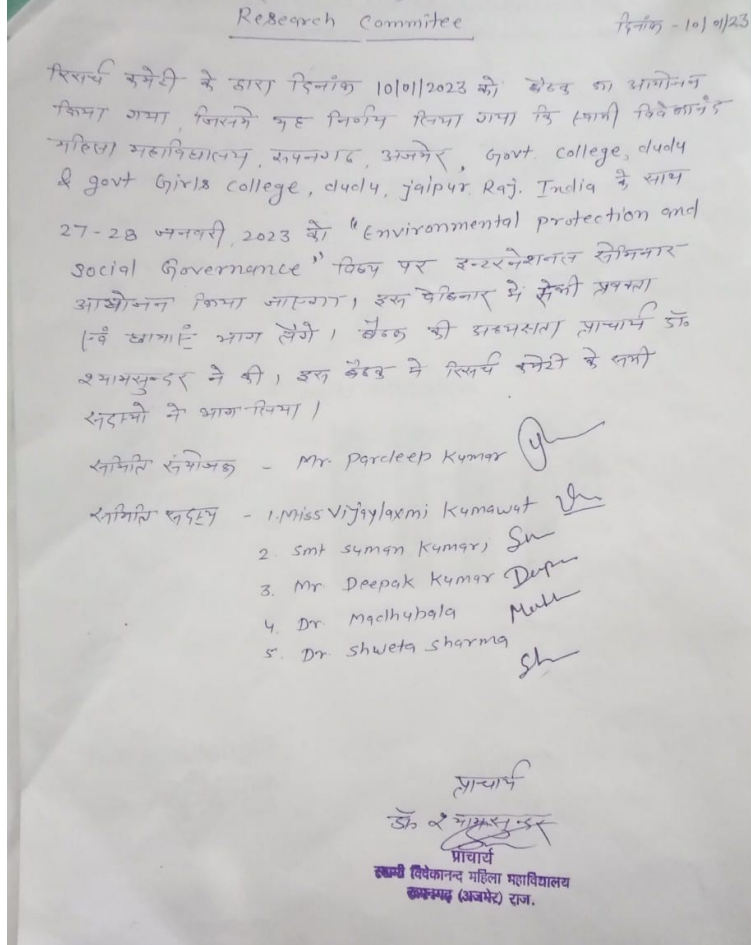 Research Commitee
दिनांक - 10/01/23
रिसर्च कमेटी के द्वारा दिनांक 10/01/2023 को बैठक का आयोजन
किया गया, जिसमें यह निर्णय लिया गया कि स्वामी विवेकानंद
महिला महाविद्यालय, रूपनगढ, अजमेर, Govt. College, dudu
& govt Girls College, dudu, jaipur. Raj. India के साथ
27-28 जनवरी, 2023 को "Environmental protection and
social Governance" विषय पर इन्टरनेशनल सेमिनार
आयोजन किया जाएगा। इस वेबिनार में सभी प्रवक्ता
एवं छात्राएं भाग लेंगे। बैठक की अध्यक्षता प्राचार्य डॉ॰
श्यामसुन्डर ने की। इस बैठक मे रिसर्च कमेटी के सभी
सदस्यो ने भाग लिया।
समिति संयोजक - Mr. Pardeep Kumar
समिति सदस्य - 1. Miss Vijaylaxmi Kumawat
2. Smt Suman Kumari
3. Mr Deepak Kumar
4. Dr. Madhubala
5. Dr Shweta Sharma
प्राचार्य
डॉ. श्यामसुन्डर
प्राचार्य
स्वामी विवेकानन्द महिला महाविद्यालय
रूपनगढ़ (अजमेर) राज.